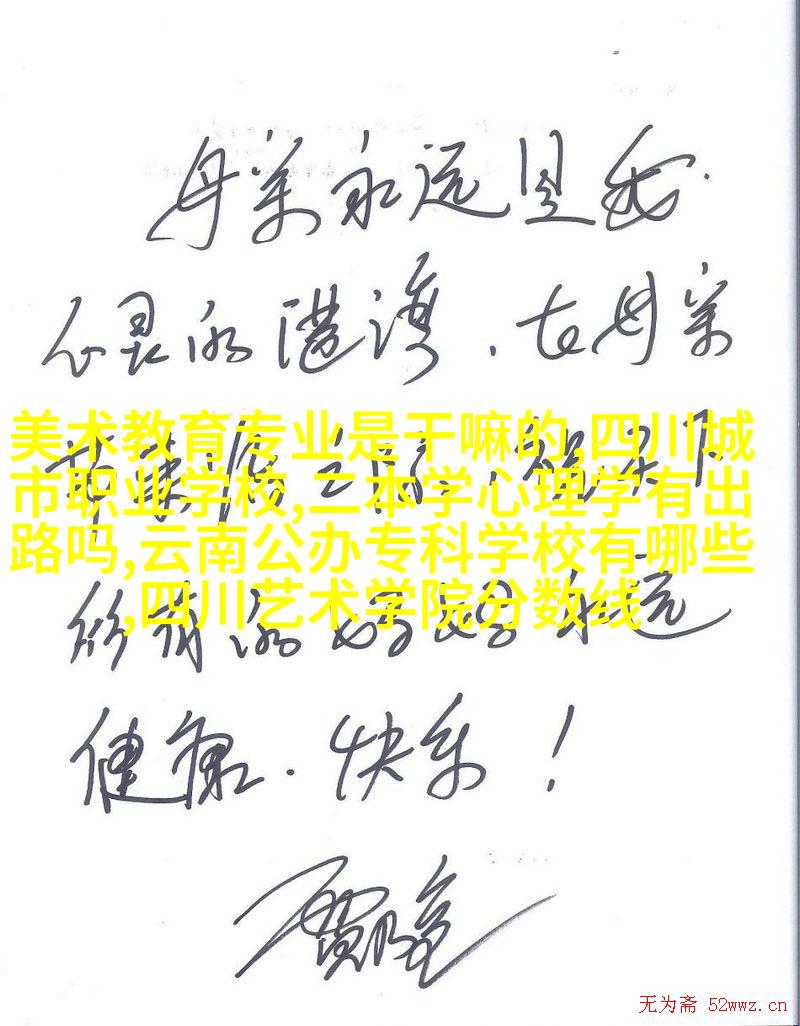 母亲永远是我
心灵的港湾,在母亲
节来临之前,祝天下
美术教育专业是干嘛的,四川城
市职业学校,二本学心理学有出
路吗,云南公办专科学校有哪些
,四川艺术学院分数线
所有的妈妈永远
健康.快乐!
无为斋 52wwz.cn